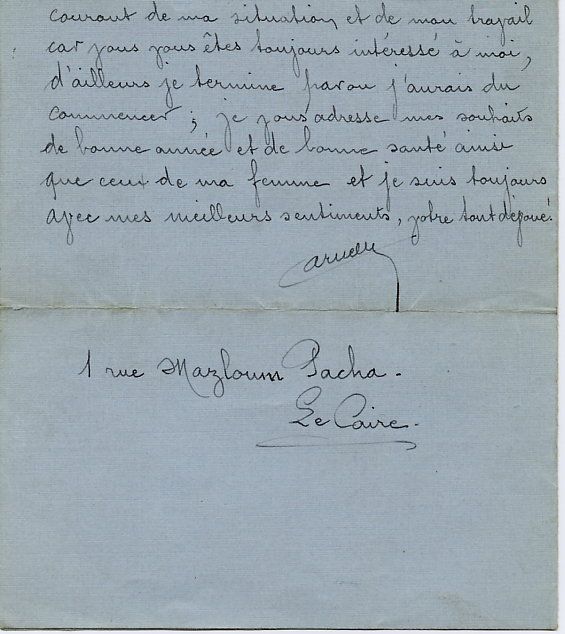 courant de ma situation et de mon travail
car vous vous êtes toujours intéressé à moi,
d'ailleurs je termine par ou j'aurais du
commencer ; je vous adresse mes souhaits
de bonne année et de bonne santé ainsi
que ceux de ma femme et je suis toujours
avec mes meilleurs sentiments, votre tout dévoué.
1 rue Mazloum Pacha.
Le Caire.